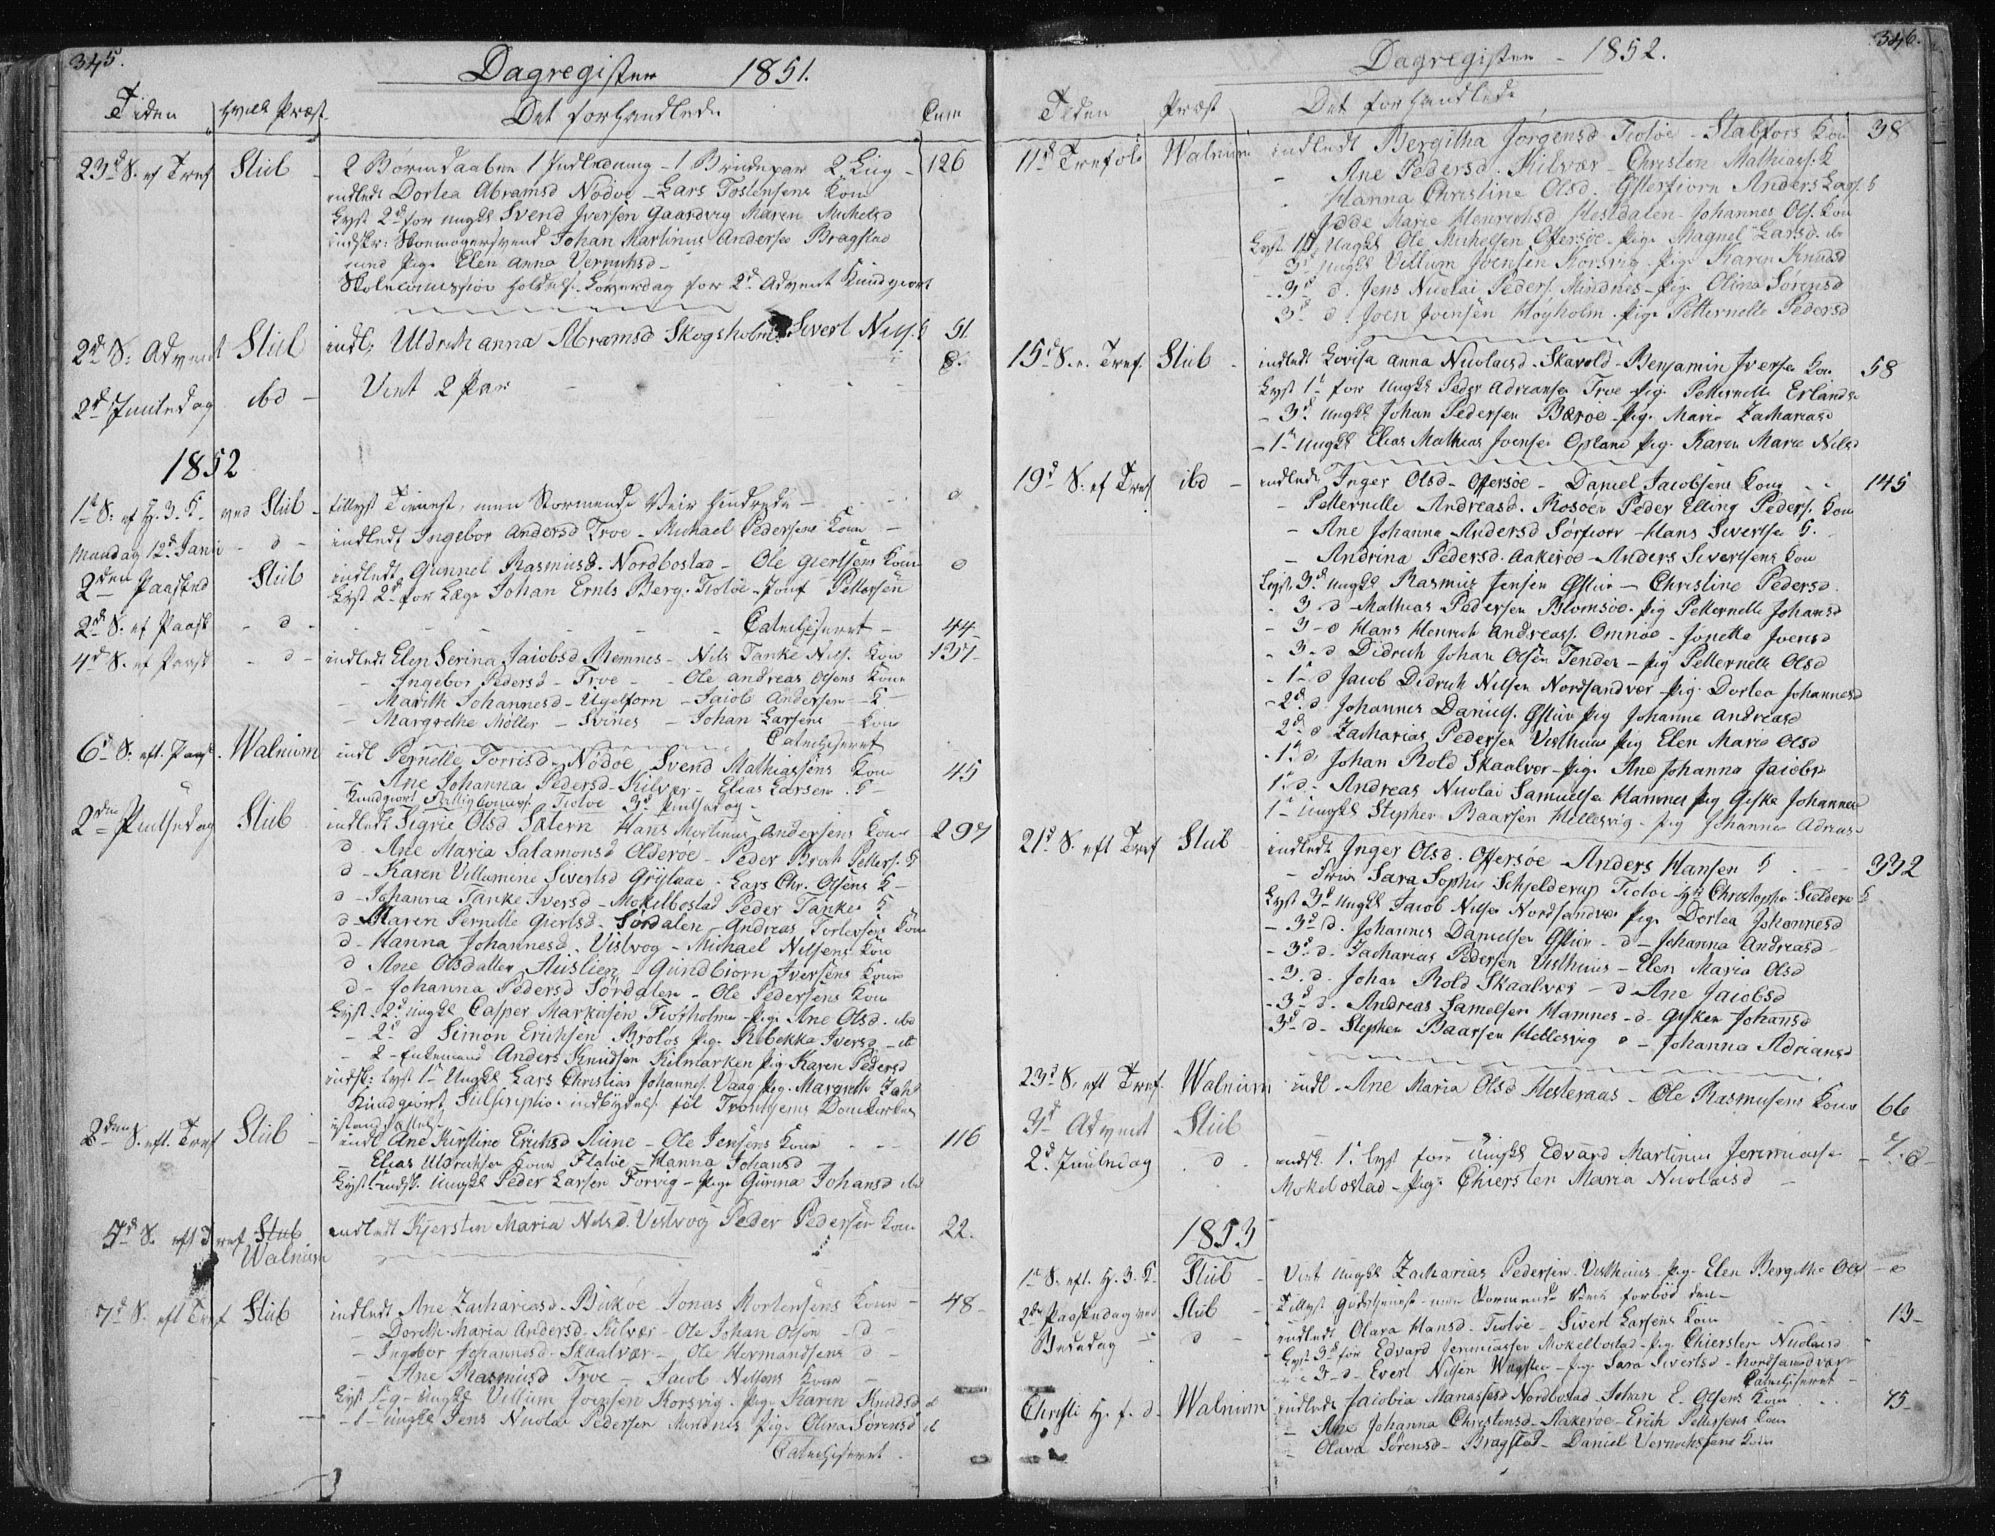 345.
Dagregister 1851.
Tiden hvilk Præst Det forhandlede Com
23d S. ef Tref Stub - 2 Børn daaben 1 Indledning - 1 Brudepar 2 Liig - 126
indledt Dortea Abramsd Nödöe - Lars Tostensens Kone
Lyst 2d for ungkl Svend Iversen Gaardvig Maren Michelsd
indskr: Skomagersvend Johan Martinus Anderse Bragstad
med pige Elen Anna Vernichsd -
Skolecomission holdes Løverdag før 2d Advent kundgiort
2d S: Advent Stub indl: Uldrichanna Abramsd Skogsholm Sivert Nils. K 51.
2d Juuledag ibd - Viet 2 Par - 8.
1852
1te S. ef H. 3. K. ved Stub - tillyst Tienest, men Stormende Veir hindrede - o
Mandag 12d Janu - d - indledt Ingebor Andersd Troe - Michael Pedersens Kone -
2den Paasked Stub indledt Gunnel Rasmusd - Nordbostad - Ole Giertsens Kone o
Lyst 2d for Læge Johan Ernts Berg. Tiotöe - Jomf Pettersen
2d S. ef Paask - d - Catechiseret - 44 -
4d S. ef Paask - d - indledt Elen Serina Jacobsd Remnes - Nils Tanke Nils. Kone 137 -
- Ingebor Pedersd - Troe - Ole Andreas Olsens Kone
- Marith Johannesd - Ugelforn - Jacob Andersen - K -
- Margrethe Möller - Svines - Johan Larsens - Kone
Catechiseret
6d S. eft. Paask. Walnum indl Pernelle Torrisd - Nödöe Svend Mathiassens Kone 45
- Ane Johanna Pedersd - Kilvær - Elias Larsen . K -
Kundgiort Tiotöe 3d Pintsedag -
2den Pintsedag Stub indledt Sigrie Olsd Sætern Hans Mortinus Andersens Kone 297
d - Ane Maria Salamonsd Olderöe - Peder Broch Petters. K
d - Karen Villumine Sivertsd Grytaae - Lars Chr. Olsens K -
d - Johanna Tanke Iversd - Mokelbostad Peder Tanke K
d Maren Pernille Giertsd - Sördalen - Andreas Torlevsens Kone
d - Hanna Johannesd - Vistvog - Michael Nilsens Kone
d Ane Olsdatter Auslien Gundbiorn Iversens Kone
d - Johanna Pedersd Sördalen - Ole Pedersens Kone
Lyst 2d ungkl Casper Markusen Tiotholm - pige Ane Olsd. ibd
- 2d d Simon Erichsen Broløs pige Rebekka Iversd - d
- 2 - Enkemand Anders Knudsen Kilmarken pig Karen Pedersd
indsk: Lyst 1te Ungkl Lars Christian Johannes. Vaag pig. Margrethe Zach
Kundgiort Subscriptions indbydels til Tronhiems Domkirkes
istandsættelse
2den S. eft. Tref Stub - indl Ane Kirstine Erichsd Aune - Ole Jensens Kone - - - 116
- Elias Uldrichsen Kone Flatöe - Hanna Johansd
Lyst indsk. Ungkl Peder Larsen Forvig - pige Gurina Johansd ibd
5d S. eft Tref Stub Walnum indledt Kjersten Maria Nilsd. Vistvog Peder Pedersen Kone 22.
7d S. eft Tref Stub indledt Ane Zachariasd - Buköe - Jonas Mortensens Kone - 48 -
- Dorth. Maria Andersd. Kilvær - Ole Johan Olsen - d -
- Ingebor Johannesd - Skaalvær - Ole Hermandsens d -
- Ane Rasmusd Troe - Jacob Nilsens Kone -
Lyst 1te g - ungkl Villum Joensen Korsvig. pige Karen Knudsd d
- 1 - Ungkl Jens Nicolai Pedersen Mindnes pig. Olina Sörensd d
Catechiseret .
346.
Dagregister - 1852.
Tiden Præst Det forhandlede
11d Trefol. Walnum indledt Bergitha Jörgensd Tiotöe - Stabfors Kone 38
- Ane Pedersd. Kilvær - Christen Mathiass. K
- Hanna Christine Olsd. Østerfiorn Anders Lars. K
- Jødde Marie Henrichsd Hestdalen - Johannes Ols. Kone
Lyst 1te Ungkl Ole Michelsen Offersøe - pige Magnel Larsd. do
3d Ungkl Villum Joensen Korsvig. pige Karen Knudsd
- 3d d. Jens Nicolai Peders. Mindnes - pig. Olina Sörensd
3d d. Joen Joensen Höyholm. pige Petternelle Pedersd
15d S. e. Tref. Stub - indledt Lovisa Anna Nicolaisd - Skavold - Benjamin Iversen Kone 58
Lyst 1te for Ungkl Peder Adriansen Troe pig. Petternelle Erlandsd
- 3d Ungkl Johan Pedersen Bæröe - pig. Maria Zachariasd
- 1te Ungkl Elias Mathias Joensen Opland pig. Karen Marie Nilsd
19d S. ef Tref. ibd - indledt Inger Olsd - Offersøe - Daniel Jacobsens Kone - - 145
- Petternelle Andreasd. Rosöen Peder Elling Peders. Kone
- Ane Johanna Andersd Sörfiorn - Hans Sivertsen K.
- Andrina Pedersd. Aakeröe - Anders Sivertsens Kone
Lyst 3d Ungkl Rasmus Jensen Østun - Christine Pedersd.
- 3 - d - Mathias Pedersen Blomsøe - pig Petternelle Johansd
- 3 - d Hans Henrich Andreass. Omnöe - Jonetta Joensd
- 3 - d Didrich Johan Olsen Tender - pig Petternelle Olsd
- 1te - d Jacob Didrich Nilsen Nordsandvær - pig. Dortea Johannesd
- 2d. d Johannes Daniels. Østun pig Johanna Andreasd
2d. d Zacharias Pedersen Visthuus pig Elen Maria Olsd
- 1te d. Johan Rold Skaalvær - pig. Ane Johanna Jacobsd
1te d. - Andreas Nicolai Samuelsen Hamnes pig Giske Johannesd
1te - Ungkl Stephen Baarsen Hellesvig - pig Johanna Adriasd
21d S. eft Tref Stub - indledt Inger Olsd. Offersøe - Anders Hansen K - - 332
- Sara Sophie Schjelderup Tiotöe Christopher K
Lyst 3d Ungkl Jacob Nilsen Nordsandvær pige Dortea Johannesd
- 3d d. Johannes Danielsen Østun - d - Johanna Andreasd
- 3d d. Zacharias Pedersen Visthuus - Elen Maria Olsd
- 3 d. Johan Rold Skaalvær - d Ane Jacobsd
- 3d d. Andreas Samelsen Hamnes - d - Gisken Johansd
3d d - Stephen Baarsen Hellesvig d - Johanna Adriansd
23d S. eft Tref. Walnum indl - Ane Maria Olsd Hesteraas - Ole Rasmusens Kone 66
3d Advent Stub
2d. Juuledag . d . indsk. 1. lyst for Ungkl Edvard Martinus Jeremiass -
Mokelbostad - pige Chiersten Maria Nicolaisd -
1853
1te S. eft. H. 3. K. Stub - Viet Ungkl Zacharias Pedersen Visthuus - pige Elen Bergithe Olsd - o
2den Paaskedag ved Stub - Tillyst Gudstjeneste men Stormende Veir forbød den - 13 -
Bededag - d - indledt Olava Hansd - Tiotöe - Sivert Larsens Kone
Lyst 3d for Edvard Jeremiassen Mokelbostad - pig. Chiersten Nicolaisd -
- 3 - d - Evert Nilsen - pig. Sara Sivertsd - Nordsandvær
Catechiseret -
Christi H. f. d. Walnum indledt Jacobia Manassesd Nordbostad - Johan E. Olsens Kone . . 75 -
- Ane Johanna Christensd - Aakeröe - Erich Pettersens Kone
- Olava Sörensd - Bragstad - Daniel Vernichsens Kone